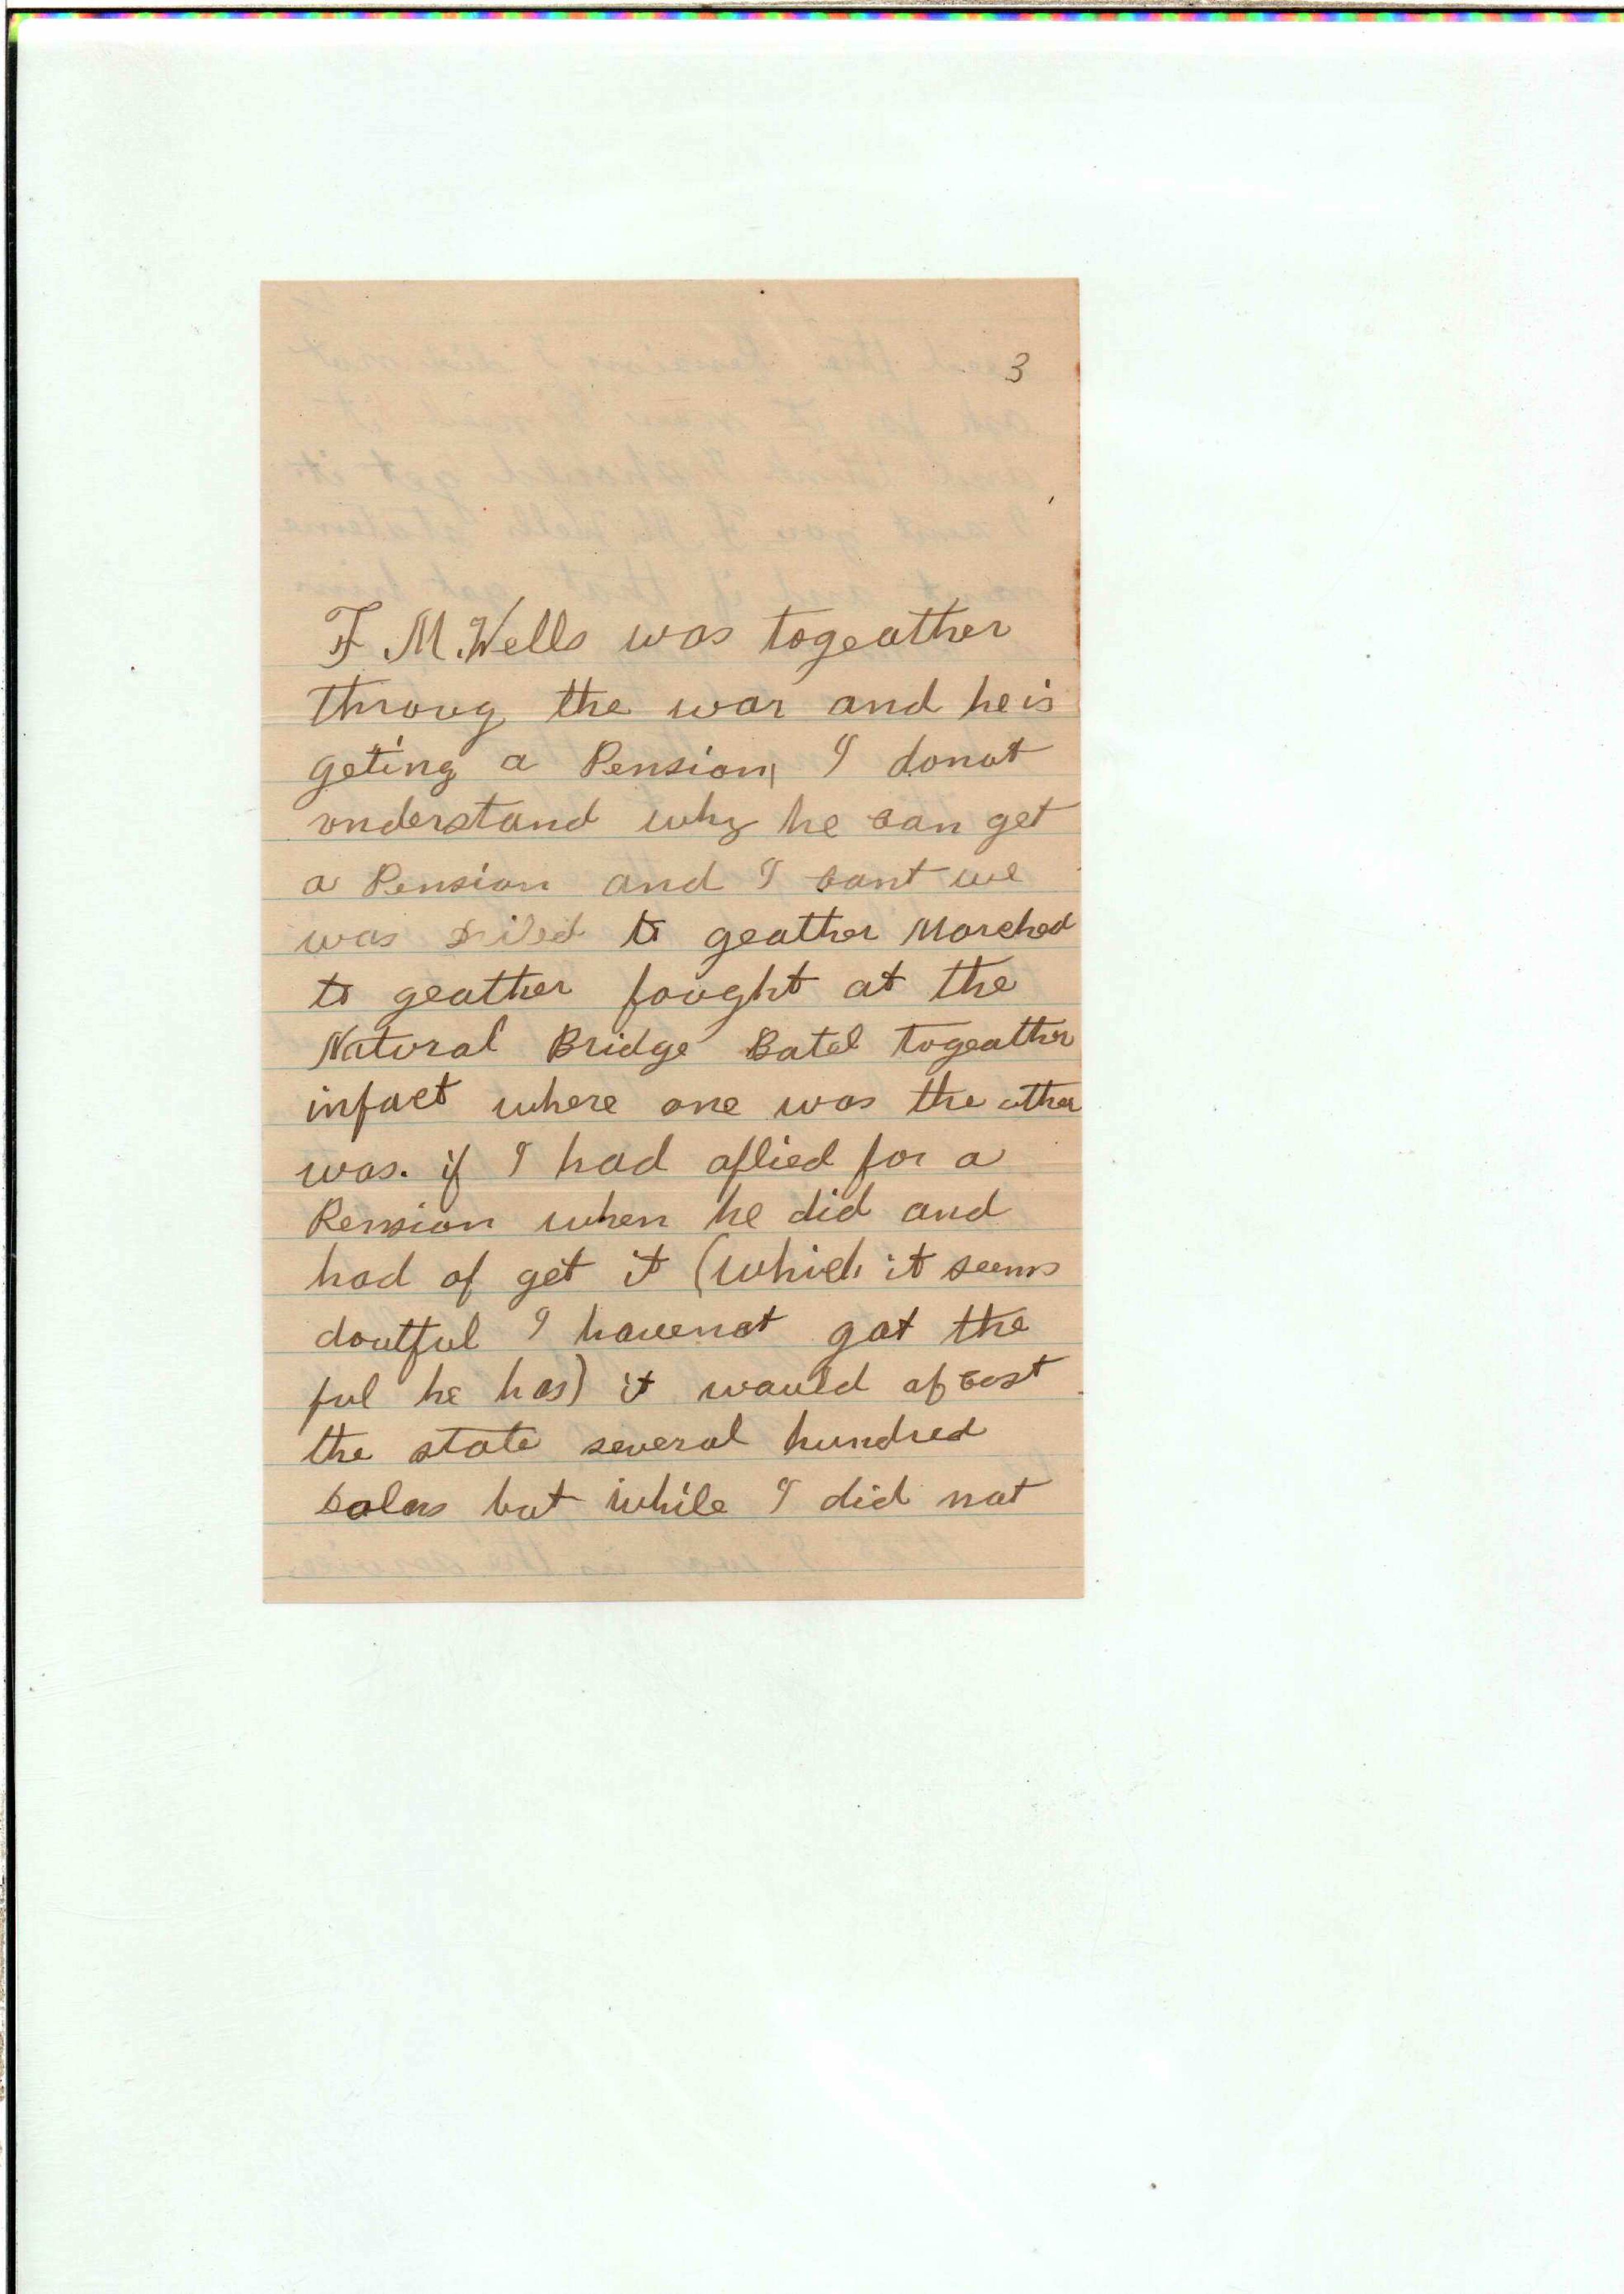 3
F. M. Wells was togeather
throug the war and he is
geting a Pension, I donot
understand why he can get
a Pension and I cant we
was driled to geather Marched
to geather fought at the
Natural Bridge Batel togeather
infact where one was the other
was. if I had aplied for a
Pension when he did and
had of get it (which it seems
doutful I havenot got the
pul he has) it would of cost
the state several hundred
dolars but while I did not